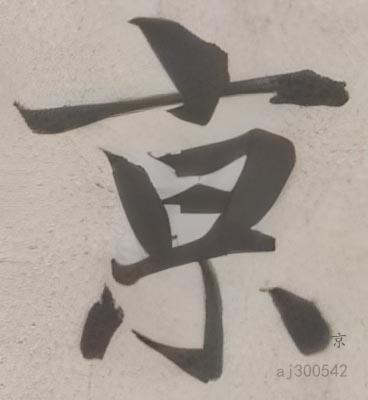 京
京
aj300542